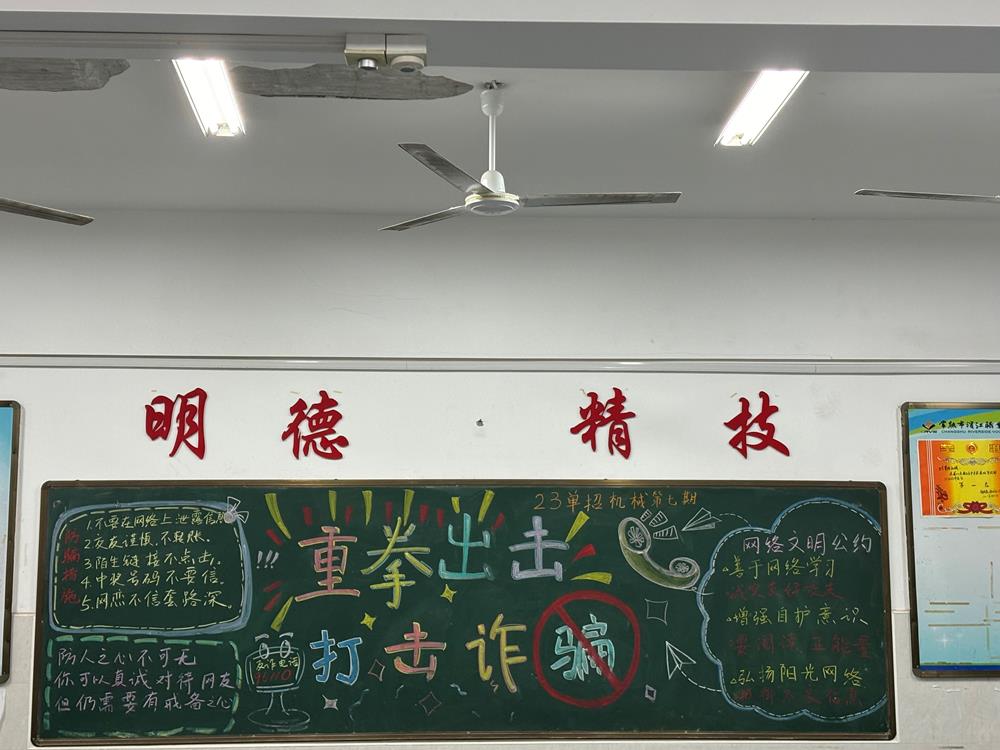 明德·精技
常熟市滨江职
CHANGSHU RIVERSIDE VO
第一名
23单招机械第七期
重拳出击
打击诈骗
防骗措施
1.不要在网络上泄露信息
2.交友谨慎.不轻账.
3.陌生链接不点击.
4.中奖号码不要信.
5.网恋不信套路深.
防人之心不可无
你可以真诚对待网友
但仍需要有戒备之心
反诈电话
96110
网络文明公约
善于网络学习
诚实友好交流
增强自护意识
要阅读正能量
弘扬阳光网络